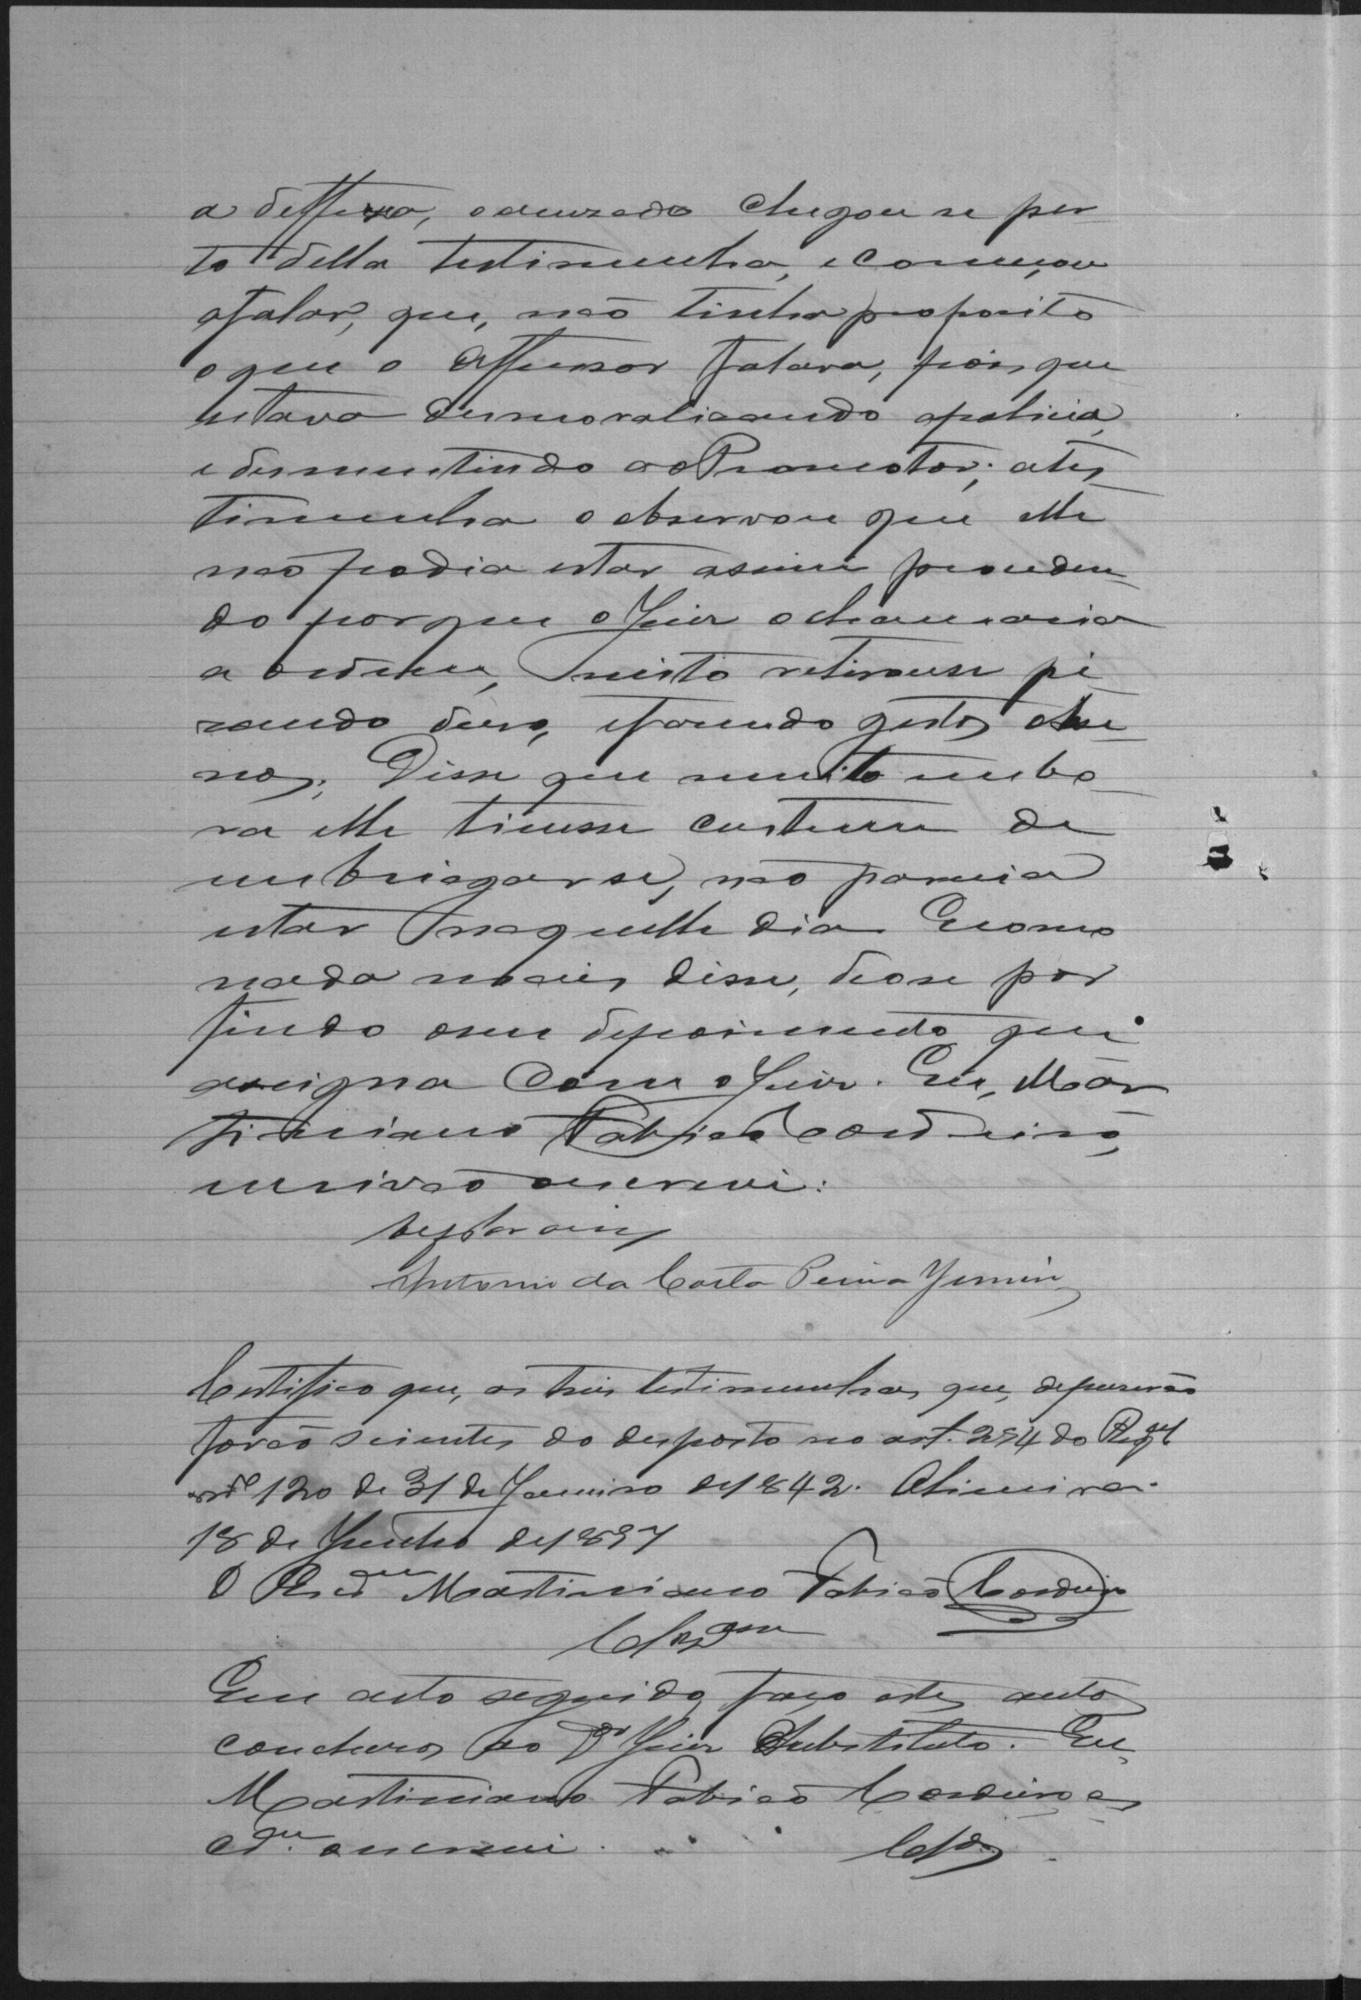 a deffeza, o acuzado chegou se per
to della testimunha, e começou
afalar, que, não tinha proposito
o que o deffensor falava, pois que
estava desmoralisando apolicia,
e desmentindo ao Promotor; ates
timunha o observou que elle
não podia estar assim proceden
do porque o Juiz o chamaria
a ordem, nisto retirouse pi
zando duro, efazendo gestos obse
nos; Disse que muito embo
ra elle tivesse custume de
embriagarse, não parecia
estar naquelle dia. Ecomo
nada mais disse, deose por
findo oseu depoimento que
assigna com o Juiz. Eu, Mar
tiniano Fabião Cordeiro,
escrivão oescrevi:
Antonio da Costa Peiva Junior
Certifico que, as treis testimunhas que, depuserão
forão scientes do desposto no art. 294 do Regul
nº 120 de 31 de Janeiro de 1842.
18 de Junho de 1897
O Escram Martiniano Fabião Cordeiro
Clzam
Em acto seguido faço estes autos
concluzos ao Dr Juiz Substituto. Eu
Martiniano Fabião Cordeiro es
cram oescrevi.
Clzos